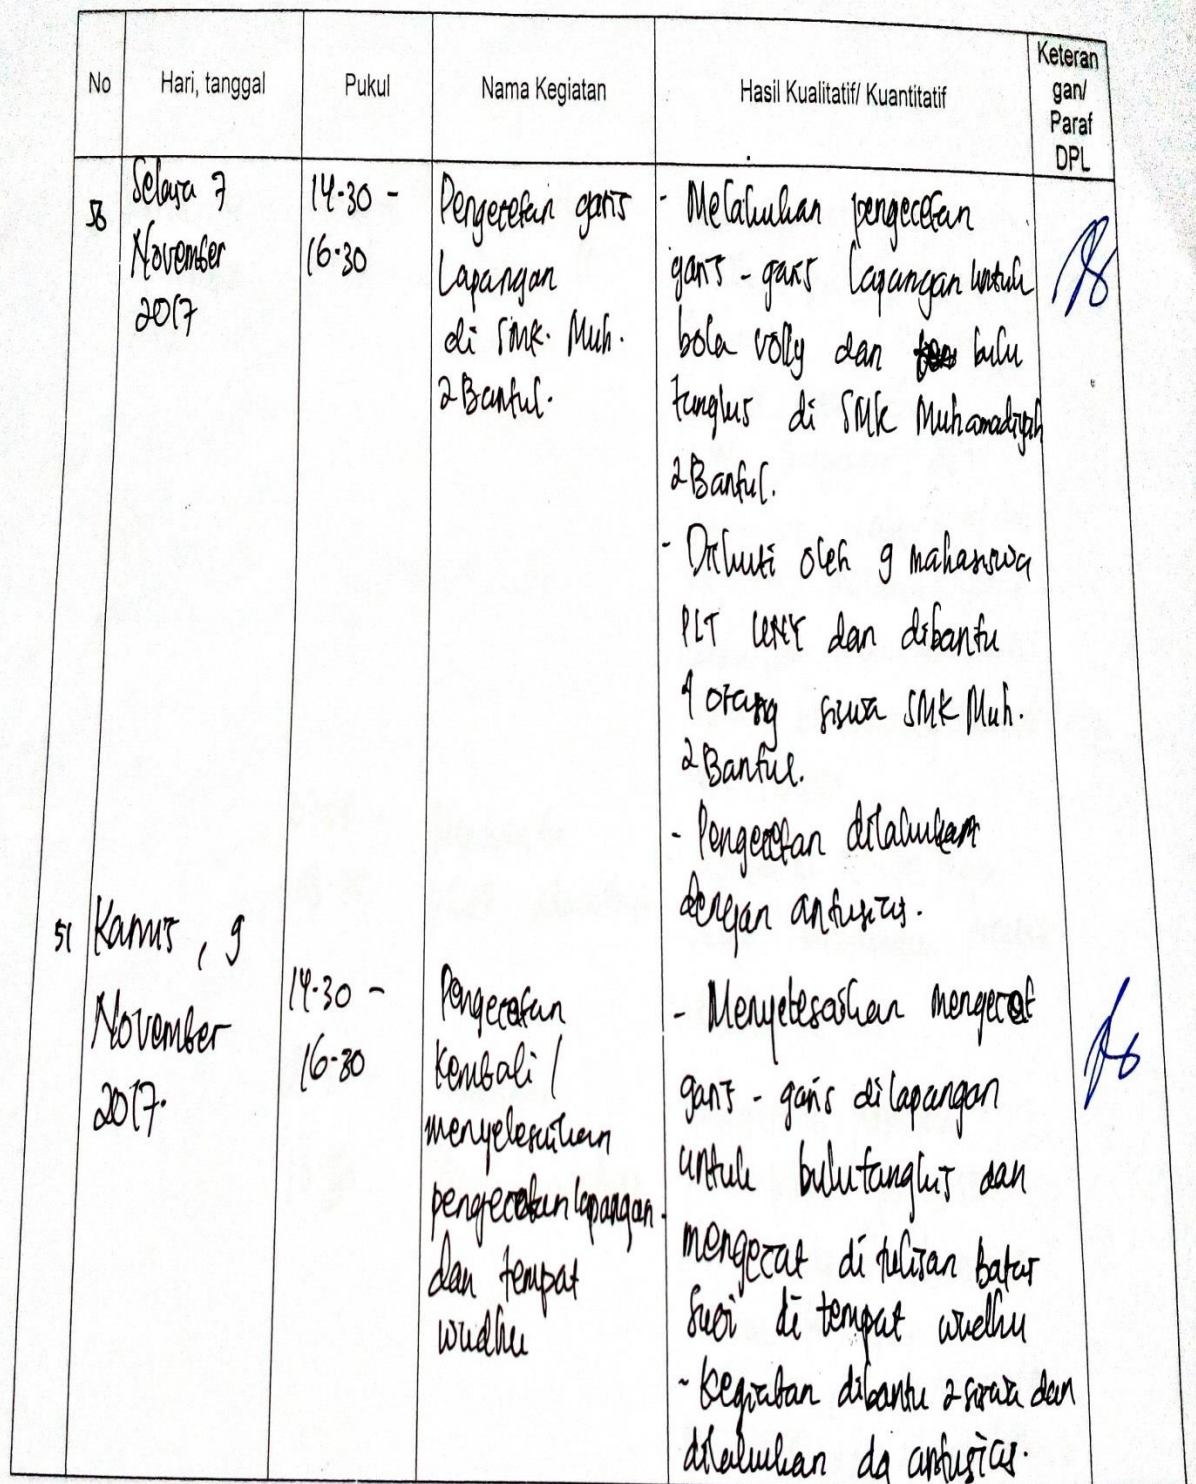 No
Hari, tanggal
Pukul
Nama Kegiatan
Hasil Kualitatif/ Kuantitatif
Keteran
gan/
Paraf
DPL
50
Selasa 7
November
2017
14.30 -
16.30
Pengecetan garis
Lapangan
di SMK. Muh.
2 Bantul.
- Melakukan pengecetan
garis - garis lapangan untuk
bola volly dan bulu
tangkis di SMK Muhamadiyah
2 Bantul.
- Diikuti oleh 9 mahasiswa
PLT UNY dan dibantu
4 orang siswa SMK Muh.
2 Bantul.
- Pengecetan dilakukan
dengan antusias.
51
Kamis, 9
November
2017.
14.30 -
16.30
Pengecetan
Kembali /
menyelesaikan
pengecetan lapangan.
dan tempat
wudhu
- Menyelesaikan mengecat
garis - garis dilapangan
untuk bulutangkis dan
mengecat di tulisan batas
suci di tempat wudhu
- Kegiatan dibantu 2 siswa dan
dilakukan dg antusias.